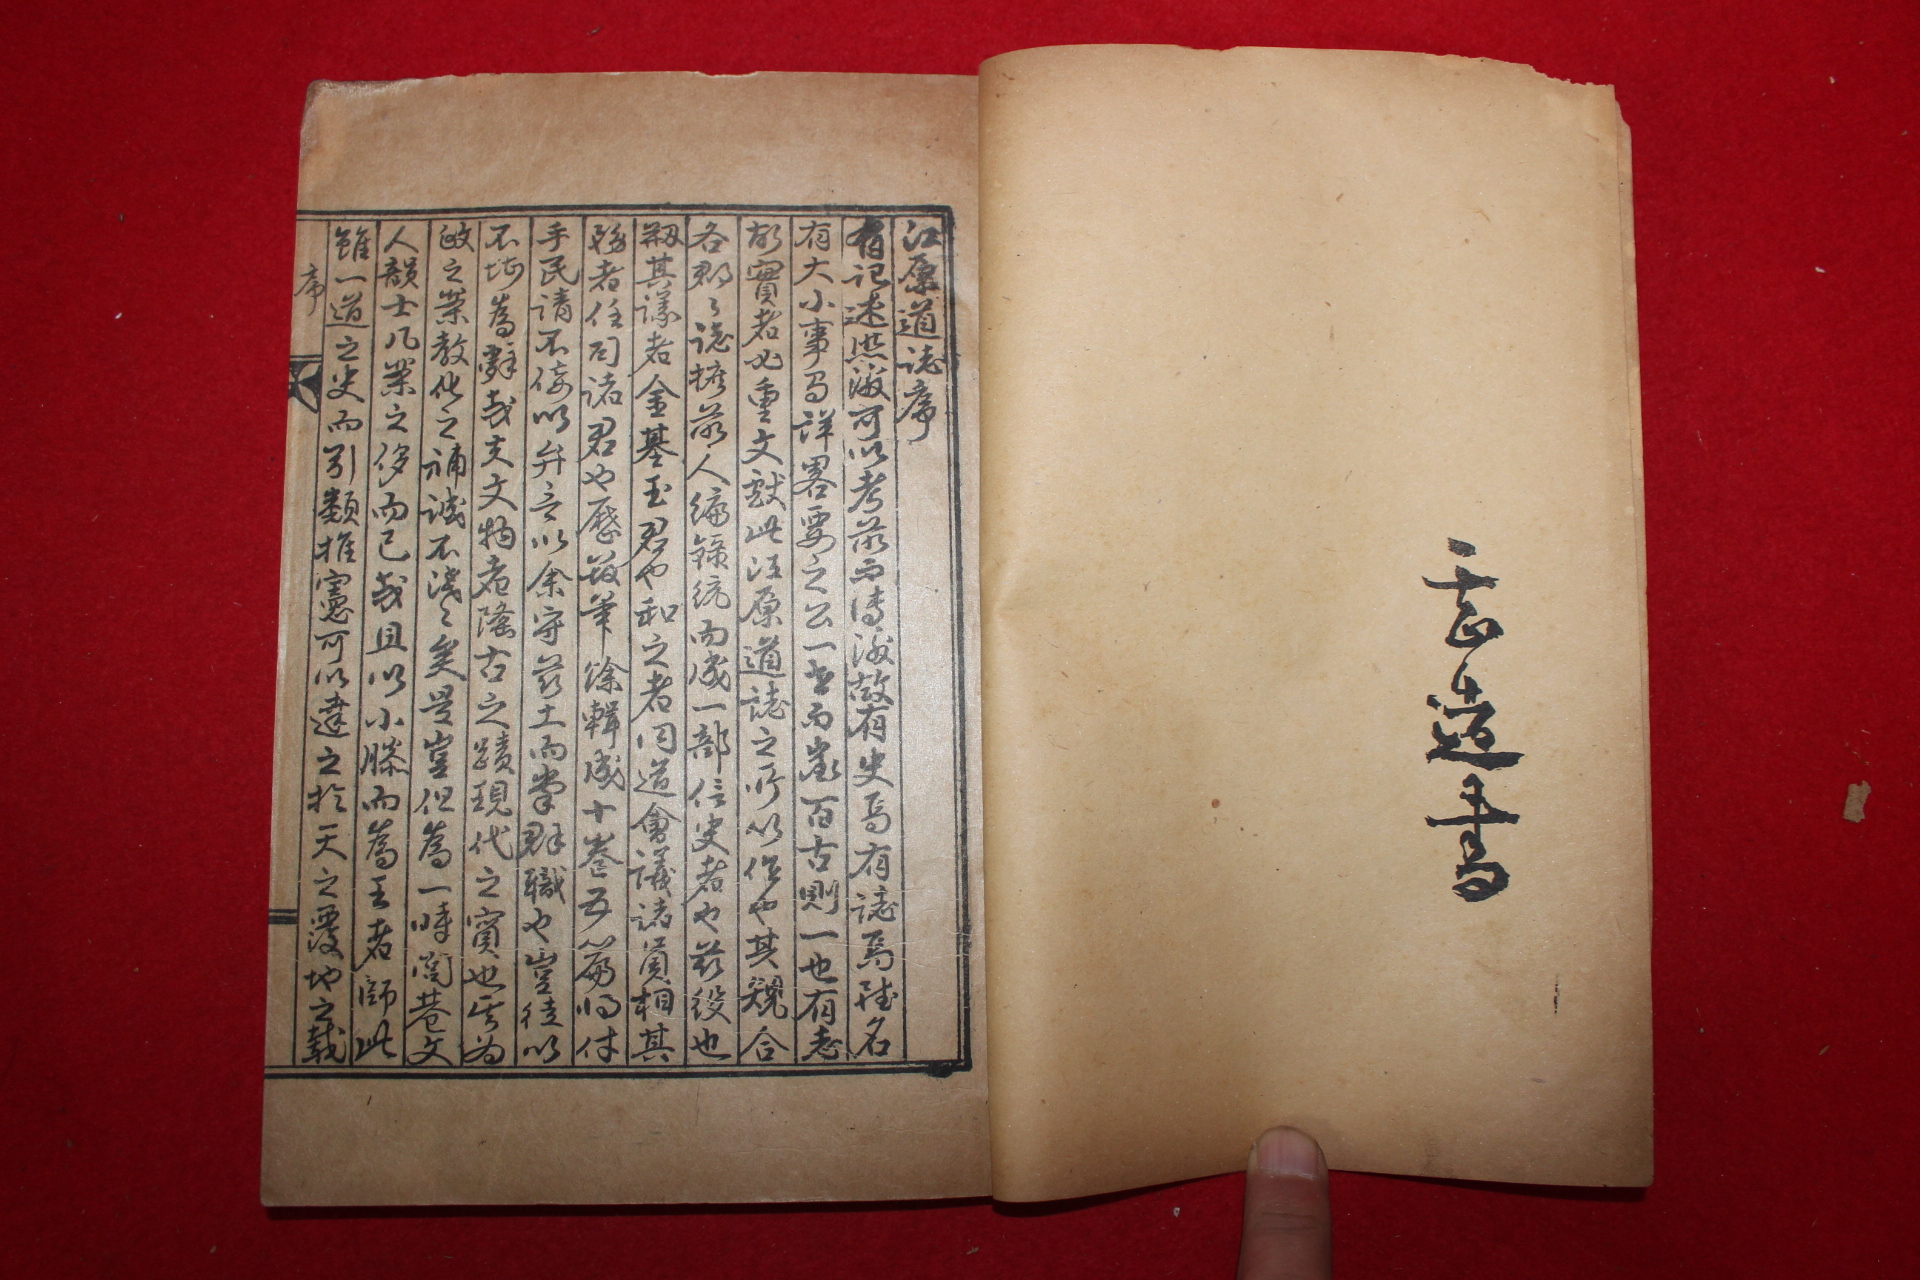 志造書
江原道誌序
有記述然後可以考前而傳後故有史焉有誌焉雖名
有大小事有詳畧要之公一世而嵗百古則一也有志
於實者必重文獻此江原道誌之所以作也其䂓合
各郡之誌據前人編錄統而成一部信史者也玆役也
刱其議者金基玉君也和之者同道會議諸員相其
務者任司諸君也歷 筆 輯成十卷五篇將付
手民請不佞以弁言以余守玆土而掌群職也豈徒以
不 爲辭哉夫文物者隆古之蹟現代之寶也其爲
政之 教化之補誠不淺淺矣是豈但爲一時閭巷文
人韻士几案之侈而已哉且以小滕而爲王者師此
雖一道之史而引類推 可以達之於天之覆地之載
序